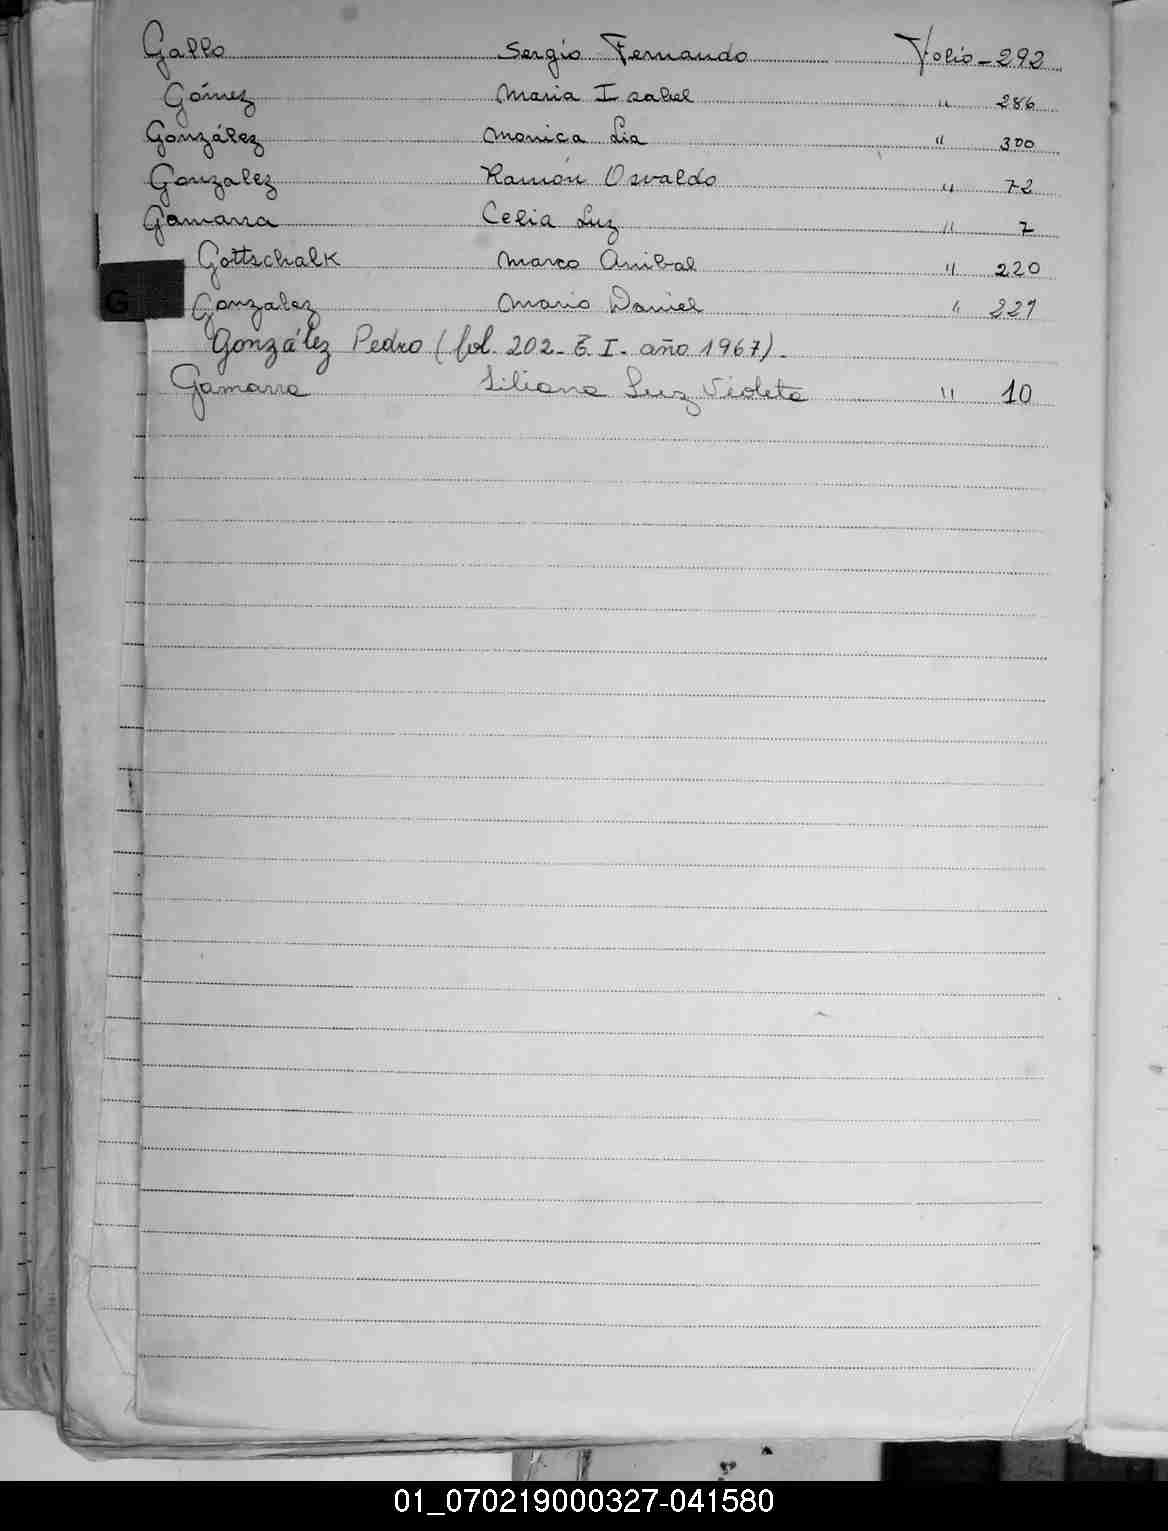 Gallo Sergio Fernando Folio - 292
Gómez Maria Isabel " 286
González Monica Lia " 300
Gonzalez Ramón Osvaldo " 72
Gamarra Celia Luz " 7
Gottschalk Marco Anibal " 220
G Gonzalez Mario Daniel " 227
González Pedro (fol. 202 - T. I - año 1967).
Gamarra Liliana Luz Violeta " 10
01_070219000327-041580